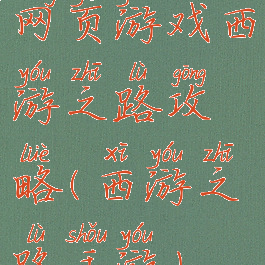 网页游戏西
yóu zhī lù gōng
游之路攻
lüè xī yóu zhī
略(西游之
lù shǒu yóu
路手游)